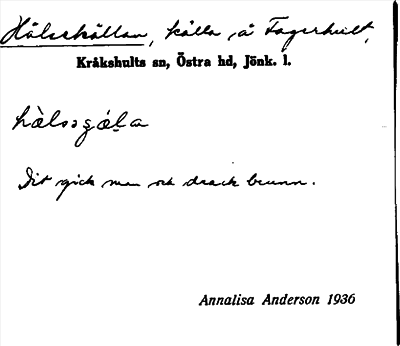 Hälsekällan, källa å Fagerhult,
Kråkshults sn, Östra hd, Jönk. l.
hälsoʒǽla
Dit gick man och drack brunn.
Annalisa Anderson 1936